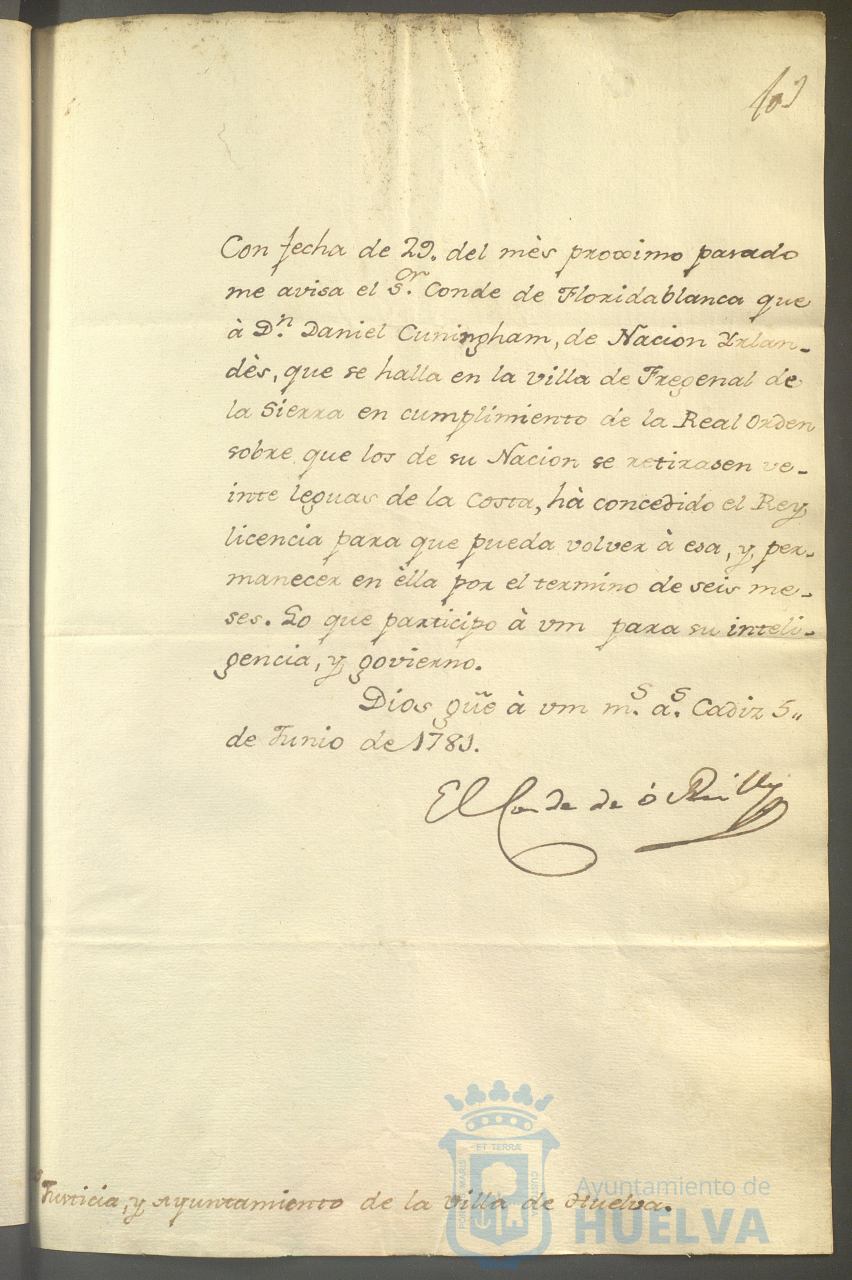 103
Con fecha de 29. del mès proximo pasado
me avisa el s.or Conde de Floridablanca que
à D.n Daniel Cuningham, de Nacion Yrlan-
dès, que se halla en la villa de Fregenal de
la Sierra en cumplimiento de la Real Orden
sobre que los de su Nacion se retirasen ve-
inte leguas de la Costa, hà concedido el Rey
licencia para que pueda volver à esa, y per-
manecer en èlla por el termino de seis me-
ses. Lo que participo à vm para su inteli-
gencia, y govierno.
Dios gũe à vm m.s a.s Cadiz 5„
de Junio de 1781.
El Conde de ó Reilly
Justicia, y Ayuntamiento de la villa de Huelva.
ET TERRÆ
Ayuntamiento de
HUELVA